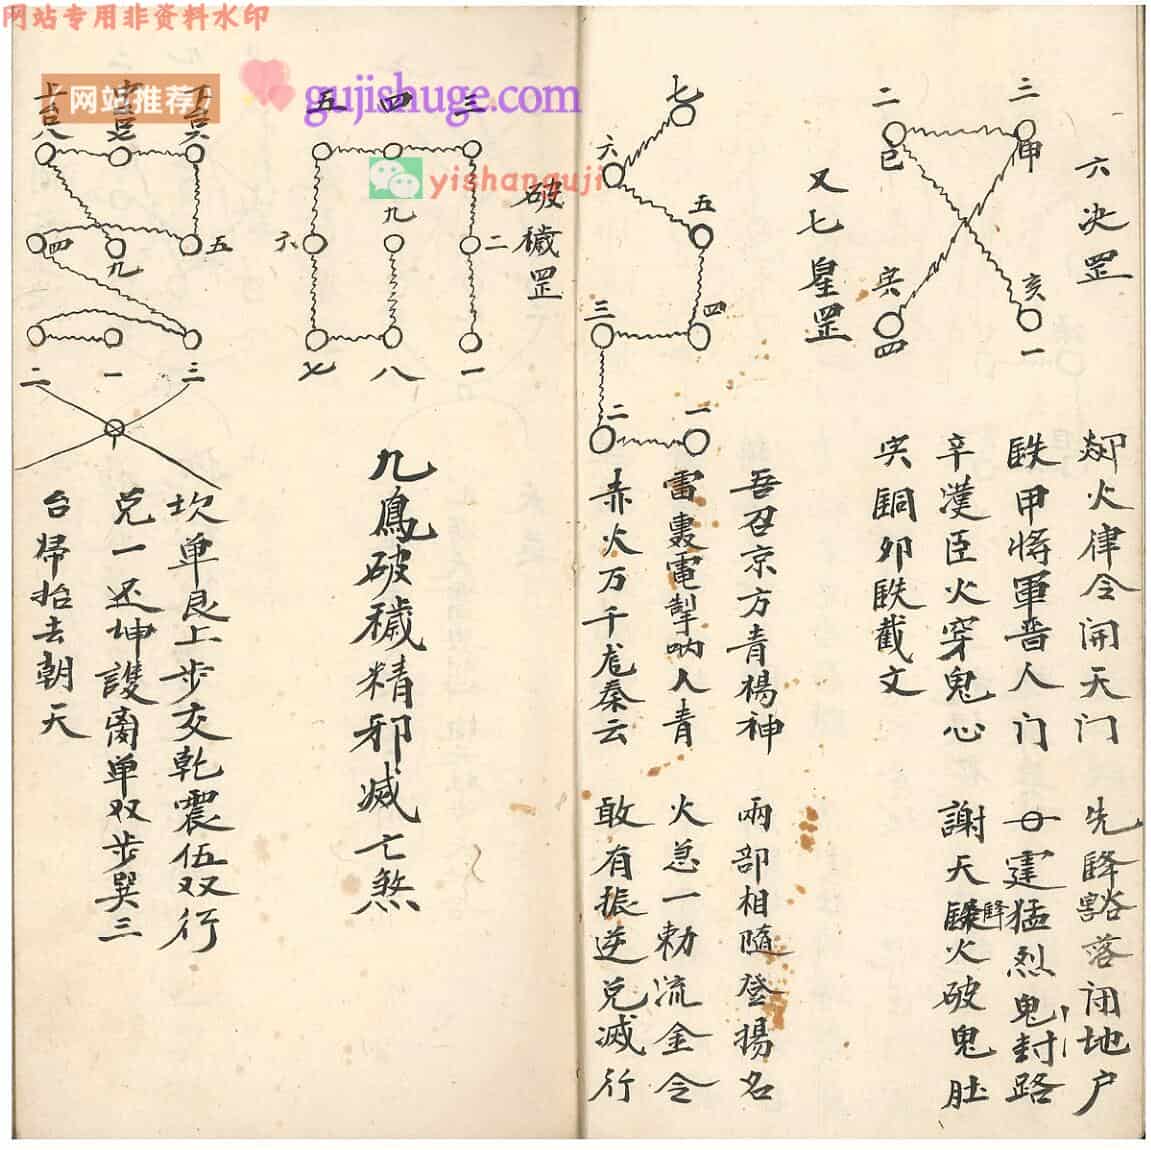 网站专用非资料水印
网站推荐
gujishuge.com
yishanguji
六决罡
三
甲
二
已
亥
一
寅
四
火律令開天门 先降豁落闭地户
甲将軍晋人门 霆猛烈鬼封路
辛漢臣火穿鬼心 謝天降火破鬼肚
卯截文
又七星罡
七
六
五
四
三
二
一
吾召京方青楊神 兩部相隨登揚名
雷轟電掣吶人青 火急一勅流金令
赤火万千秦云 敢有振逆兑滅行
破穢罡
三
四
五
九
二
六
一
八
七
九鳳破穢精邪滅亡煞
五
四
九
三
一
二
坎单艮上步交乾震伍双行
兑一还坤離单双步巽三
台歸抬去朝天